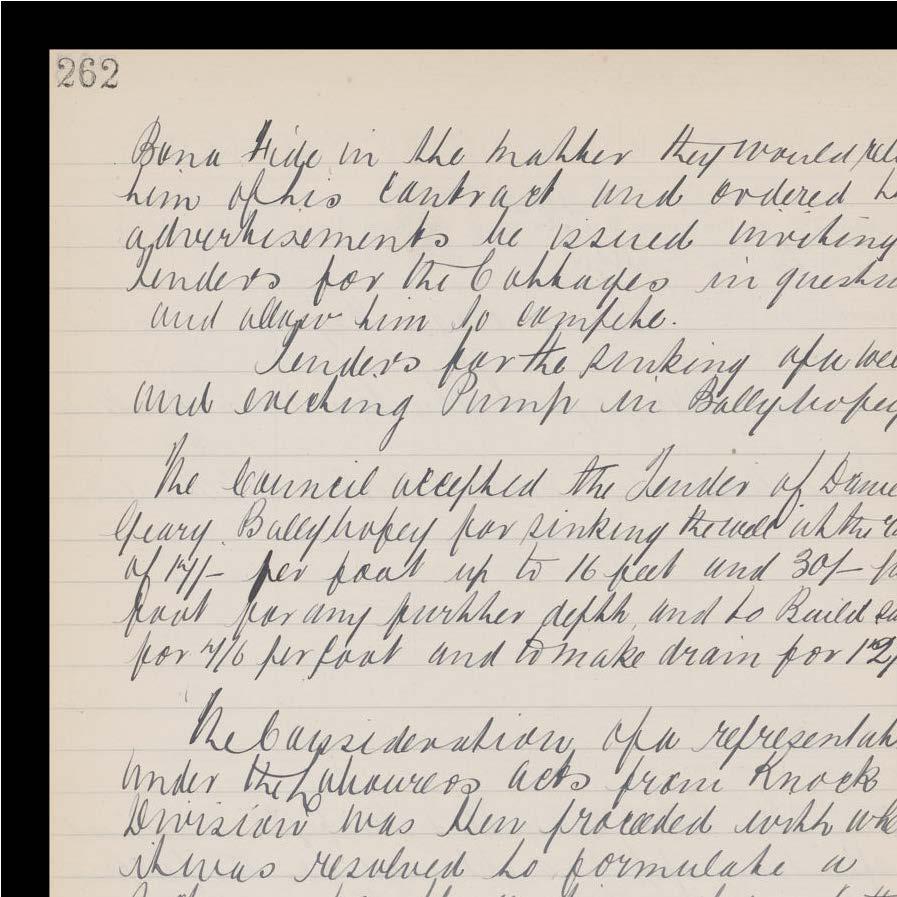 262
Bona Fide in the matter they would rel
him of his contract and ordered
advertisements be issued inviting
tenders for the Cottages in questi
and allow him to compete.
Tenders for the sinking of a wel
and erecting Pump in Ballyhopey
The Council accepted the Tender of Danie
Geary Ballyhopey for sinking the well at the
of per foot up to 16 feet and 30/-
foot for any further depth, and to Build
for per foot and to make drain for
The Consideration of a representati
under the Labourers acts from Knock
Division was then proceeded with whe
it was resolved to formulate a